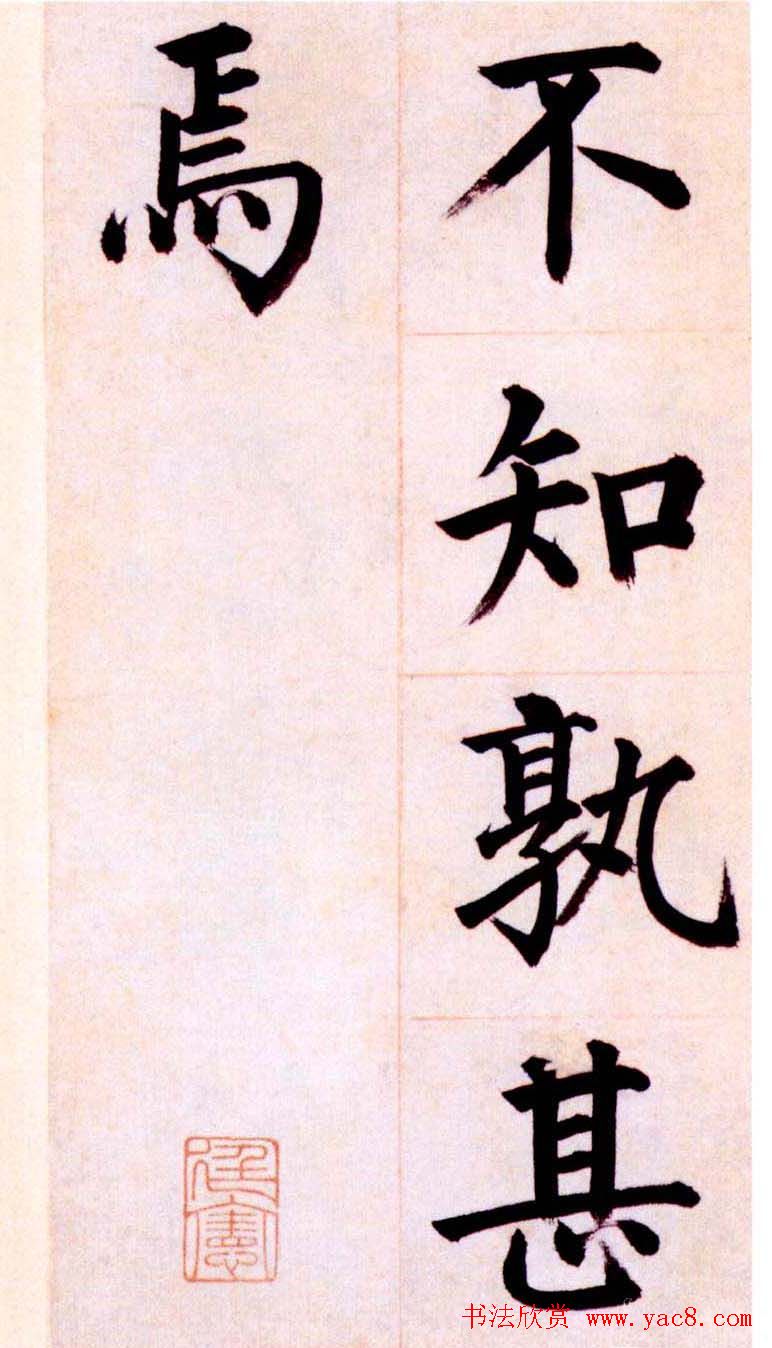 不知孰甚
焉
书法欣赏 www.yac8.com